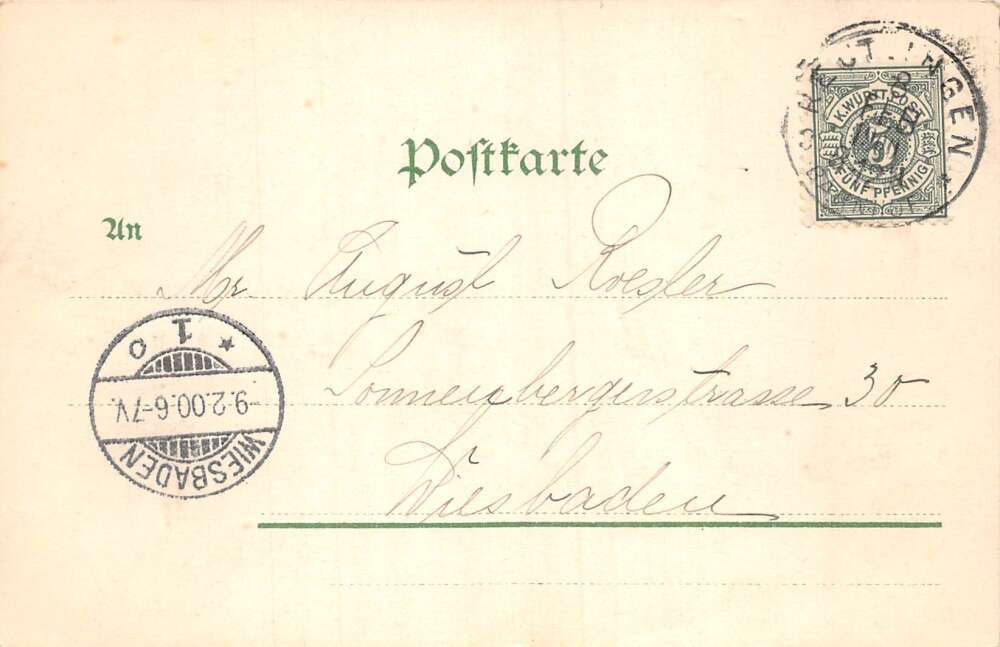 Postkarte
K. WÜRTT. POST
5
FÜNF PFENNIG
8 FEB
An
Mr August Roesler
Sonnenbergerstrasse 30
Wiesbaden
WIESBADEN
-9.2.00.6-7V.
* 1 c